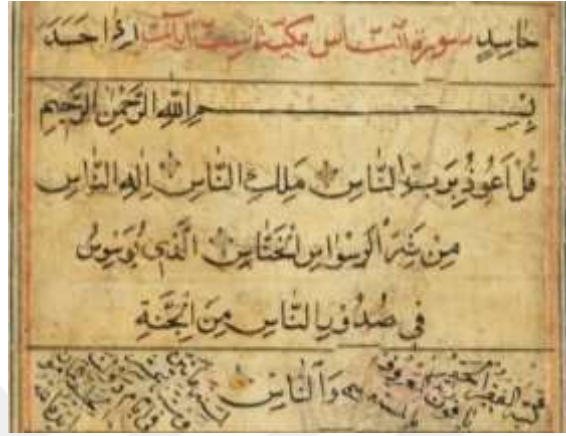 حَاسِدٍ سورة الناس مكية ست آيات اِذَا حَسَدَ
بِسْمِ اللّٰهِ الرَّحْمٰنِ الرَّحِيمِ
قُلْ اَعُوذُ بِرَبِّ النَّاسِ مَلِكِ النَّاسِ اِلٰهِ النَّاسِ
مِنْ شَرِّ الْوَسْوَاسِ الْخَنَّاسِ الَّذِى يُوَسْوِسُ
فِى صُدُورِ النَّاسِ مِنَ الْجَنَّةِ
وَالنَّاسِ